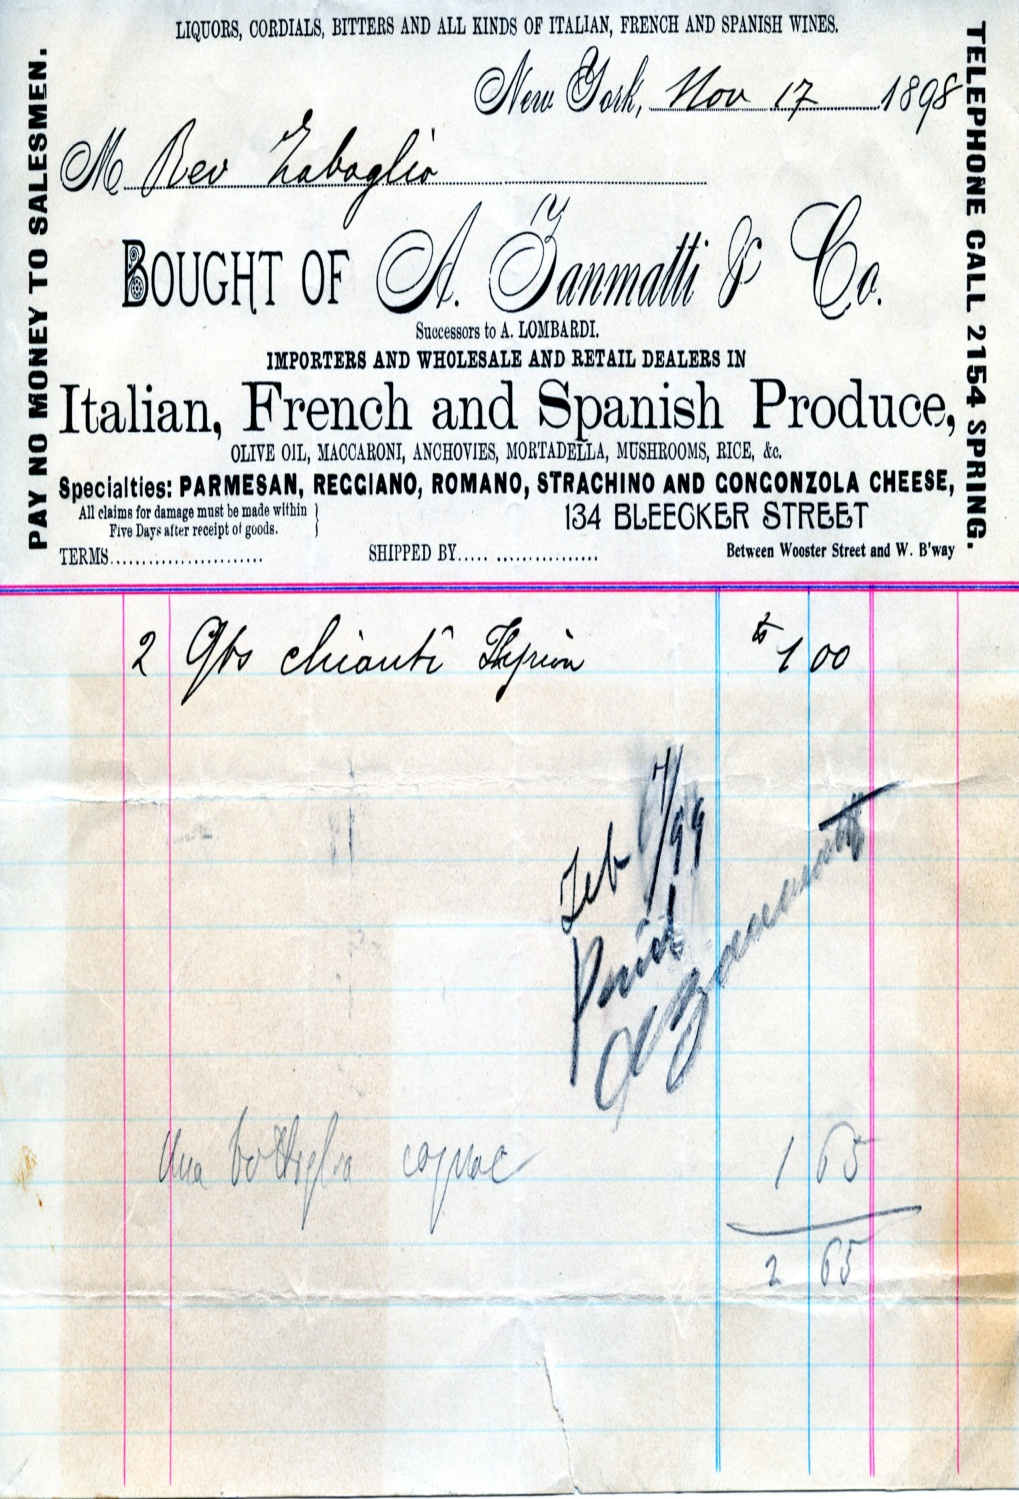 LIQUORS, CORDIALS, BITTERS AND ALL KINDS OF ITALIAN, FRENCH AND SPANISH WINES.
PAY NO MONEY TO SALESMEN.
TELEPHONE CALL 2154 SPRING.
New York, Nov 17 1898
M Rev Zabaglio
BOUGHT OF A. Zanmatti & Co.
Successors to A. LOMBARDI.
IMPORTERS AND WHOLESALE AND RETAIL DEALERS IN
Italian, French and Spanish Produce,
OLIVE OIL, MACCARONI, ANCHOVIES, MORTADELLA, MUSHROOMS, RICE, &c.
Specialties: PARMESAN, REGGIANO, ROMANO, STRACHINO AND GONGONZOLA CHEESE,
All claims for damage must be made within
Five Days after receipt of goods.
134 BLEECKER STREET
TERMS........................ SHIPPED BY..... ................ Between Wooster Street and W. B'way
2 Qts chianti $1 00
Feb /99
Paid
A Zanmatti
Una bottiglia cognac 1 65
2 65